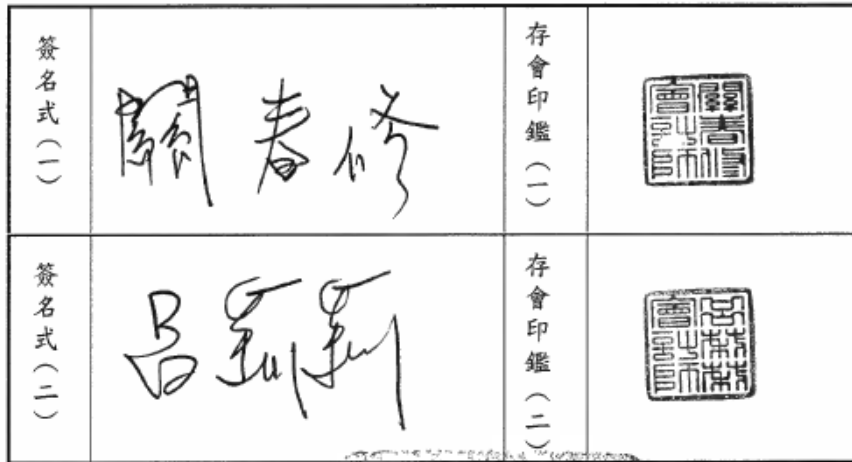 簽名式（一） 關春修 存會印鑑（一） 關春修會計師
簽名式（二） 呂莉莉 存會印鑑（二） 呂莉莉會計師